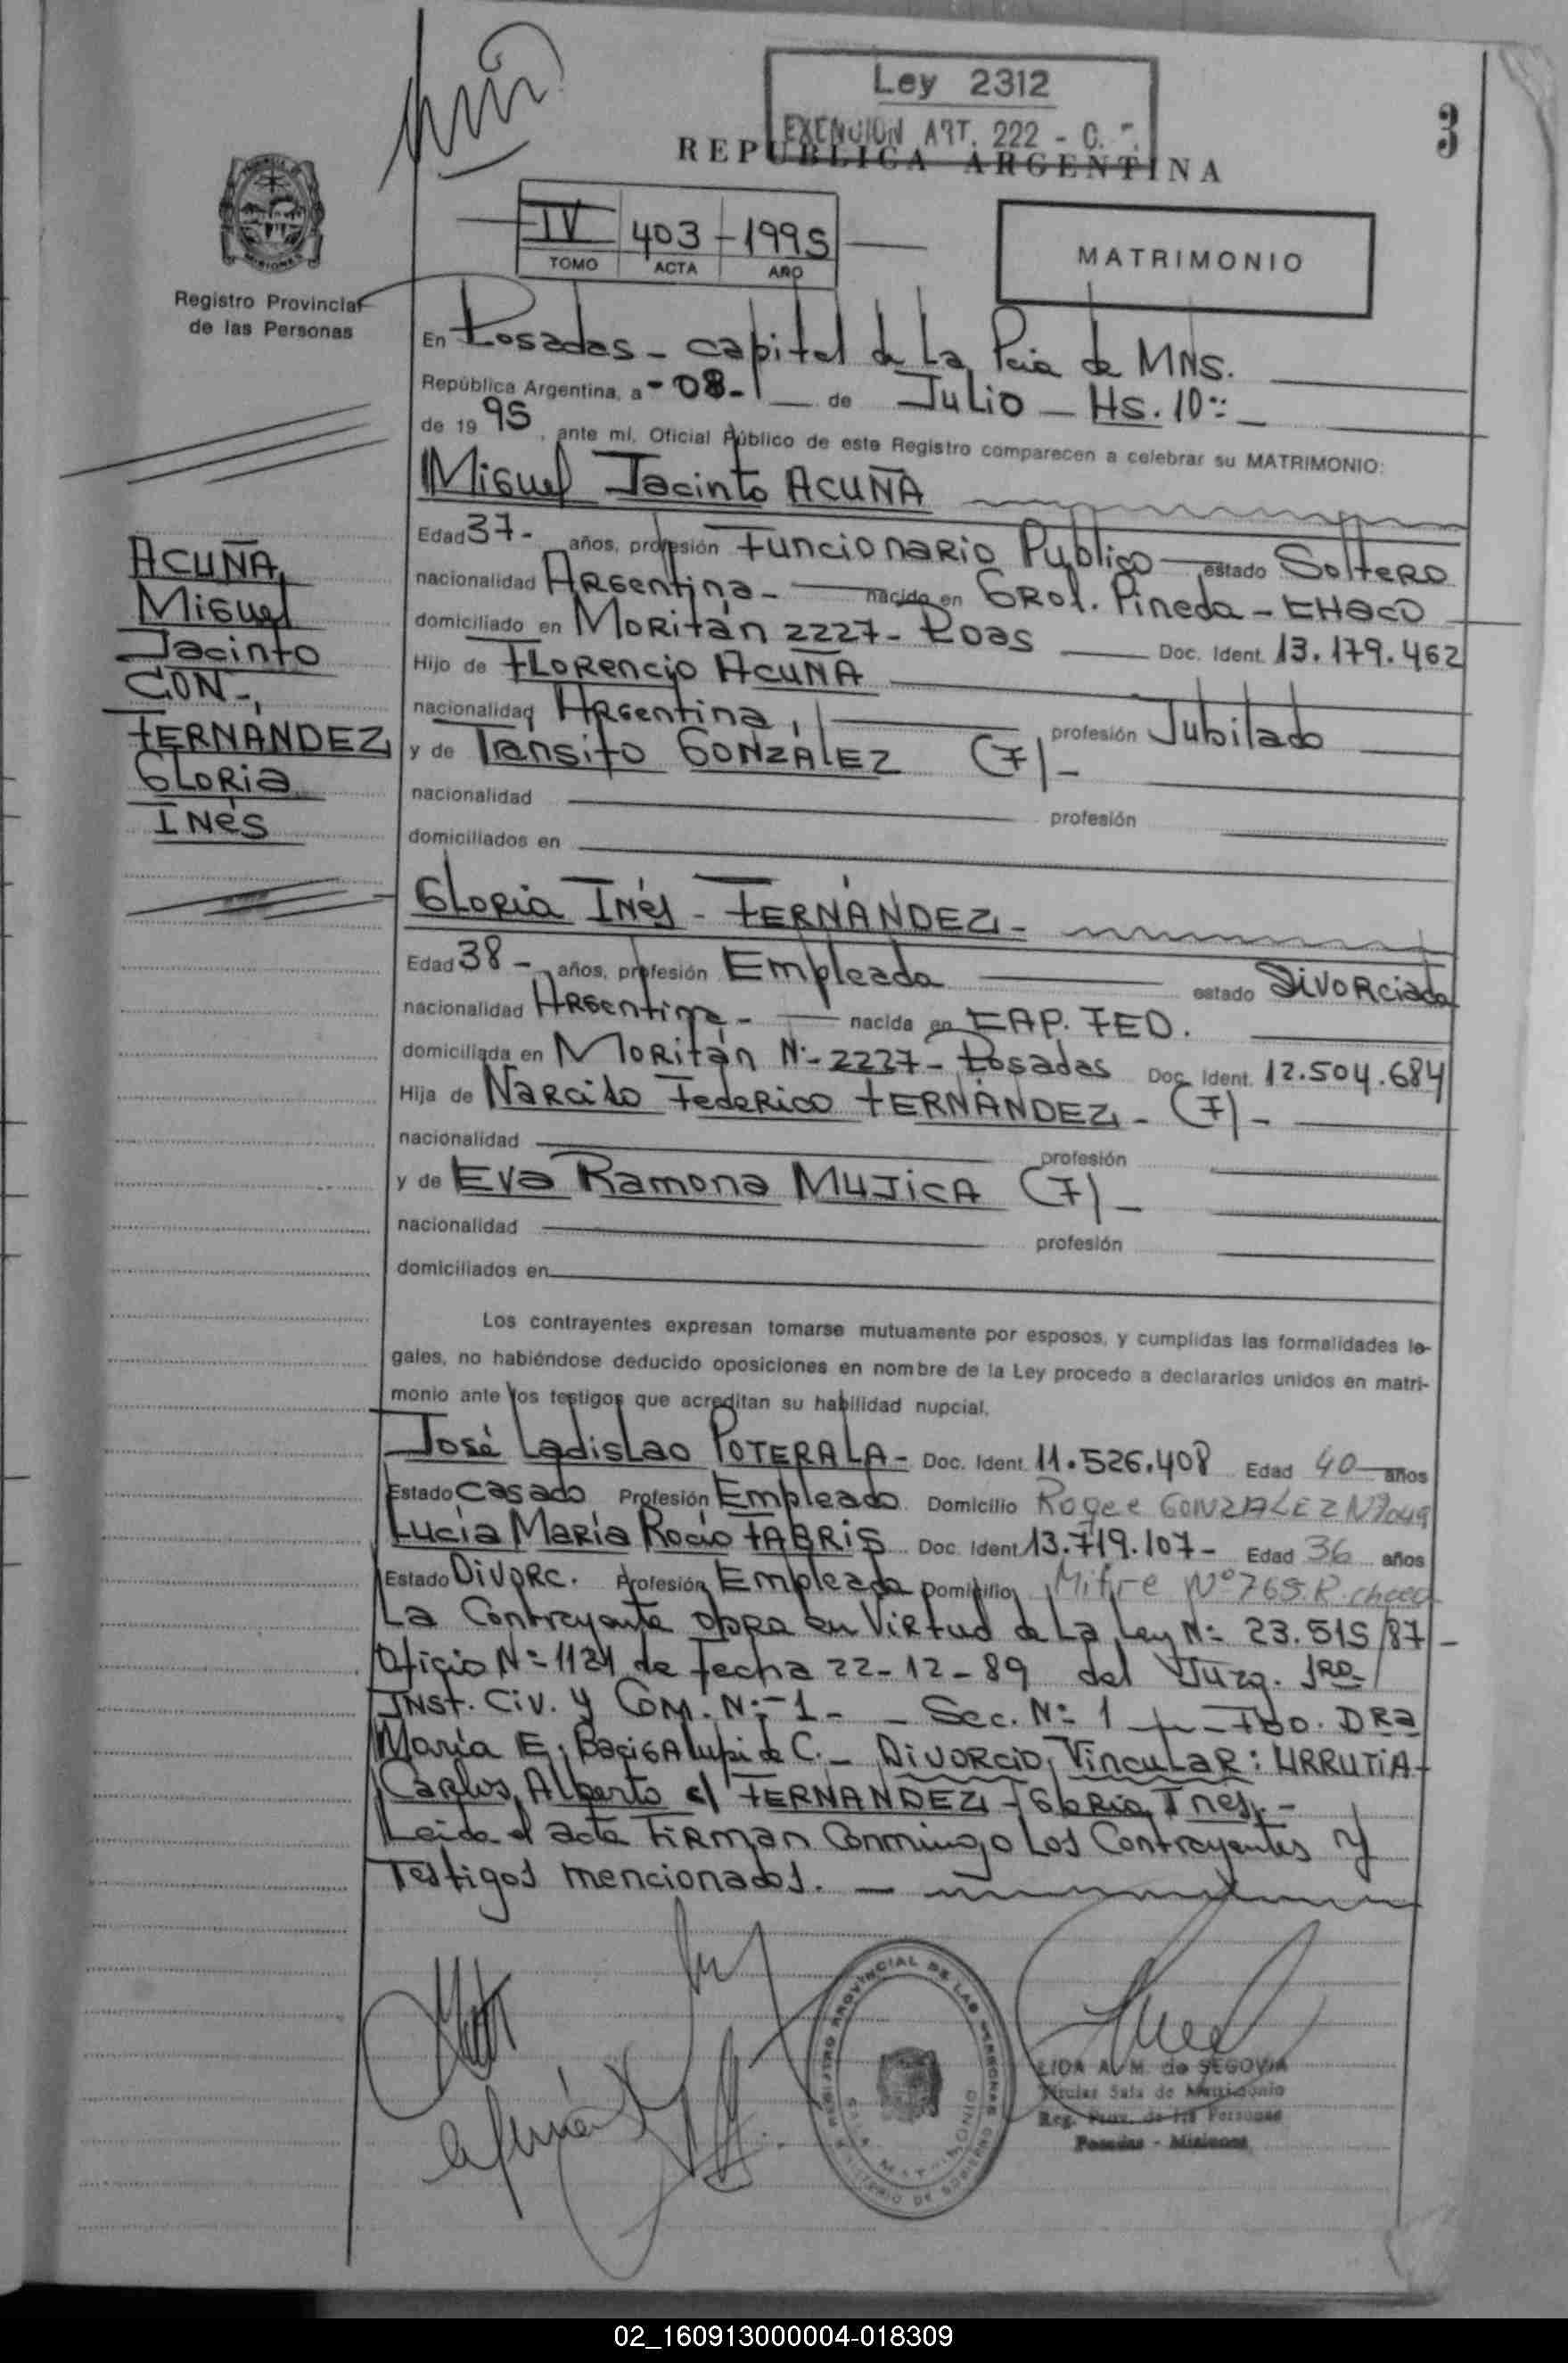 Ley 2312
EXENCION ART. 222 - C.
REPUBLICA ARGENTINA
3
IV 403 - 1995
TOMO ACTA AÑO
MATRIMONIO
Registro Provincial
de las Personas
En Posadas - capital de La Pcia de MNS.
República Argentina, a - 08 - de Julio - Hs. 10:
de 1995, ante mí, Oficial Público de este Registro comparecen a celebrar su MATRIMONIO:
Miguel Jacinto ACUÑA
Edad 37 - años, profesión Funcionario Publico estado Soltero
nacionalidad Argentina - nacido en GRol. Pineda - CHaco
domiciliado en Moritán 2227 - Pdas Doc. Ident. 13.179.462
Hijo de Florencio ACUÑA
nacionalidad Argentina, profesión Jubilado
y de Tránsito GONZÁLEZ (F) -
nacionalidad profesión
domiciliados en
ACUÑA,
Miguel
Jacinto
CON -
FERNÁNDEZ
GLORIA
INés
GLORIA INés - FERNÁNDEZ -
Edad 38 - años, profesión Empleada estado Divorciada
nacionalidad Argentina - nacida en CAP. FED.
domiciliada en Moritán N:- 2227 - Posadas Doc. Ident. 12.504.684
Hija de Narciso Federico FERNÁNDEZ - (F) -
nacionalidad profesión
y de Eva Ramona MUJICA (F) -
nacionalidad profesión
domiciliados en
Los contrayentes expresan tomarse mutuamente por esposos, y cumplidas las formalidades le-
gales, no habiéndose deducido oposiciones en nombre de la Ley procedo a declararlos unidos en matri-
monio ante los testigos que acreditan su habilidad nupcial.
José Ladislao POTERALA - Doc. Ident. 11.526.408 Edad 40 años
Estado Casado Profesión Empleado Domicilio GONZALEZ
Lucía María Rocío FABRIS Doc. Ident. 13.719.107 - Edad 36 años
Estado Divorc. Profesión Empleada Domicilio Mitre Nº 765. R. chaco
La Contrayente obra en Virtud de La Ley N:- 23.515/87 -
Oficio N:- 1124 de fecha 22-12-89 del Juzg. 1RO
INST. Civ. y Com. N:- 1 - - Sec. N:- 1 - Fdo. DRa
María E. Bacigalupi de C. - DIVORCIO, VINCULAR: URRUTIA
Carlos Alberto c/ FERNANDEZ - Gloria Ines. -
Leida el acta Firman Conmingo Los Contrayentes y
Testigos mencionados. -
REGISTRO PROVINCIAL DE LAS PERSONAS
SALA MATRIMONIO
MINISTERIO DE GOBIERNO
LIDA A. M. de SEGOVIA
Titular Sala de Matrimonio
Reg. Prov. de las Personas
Posadas - Misiones
02_160913000004-018309